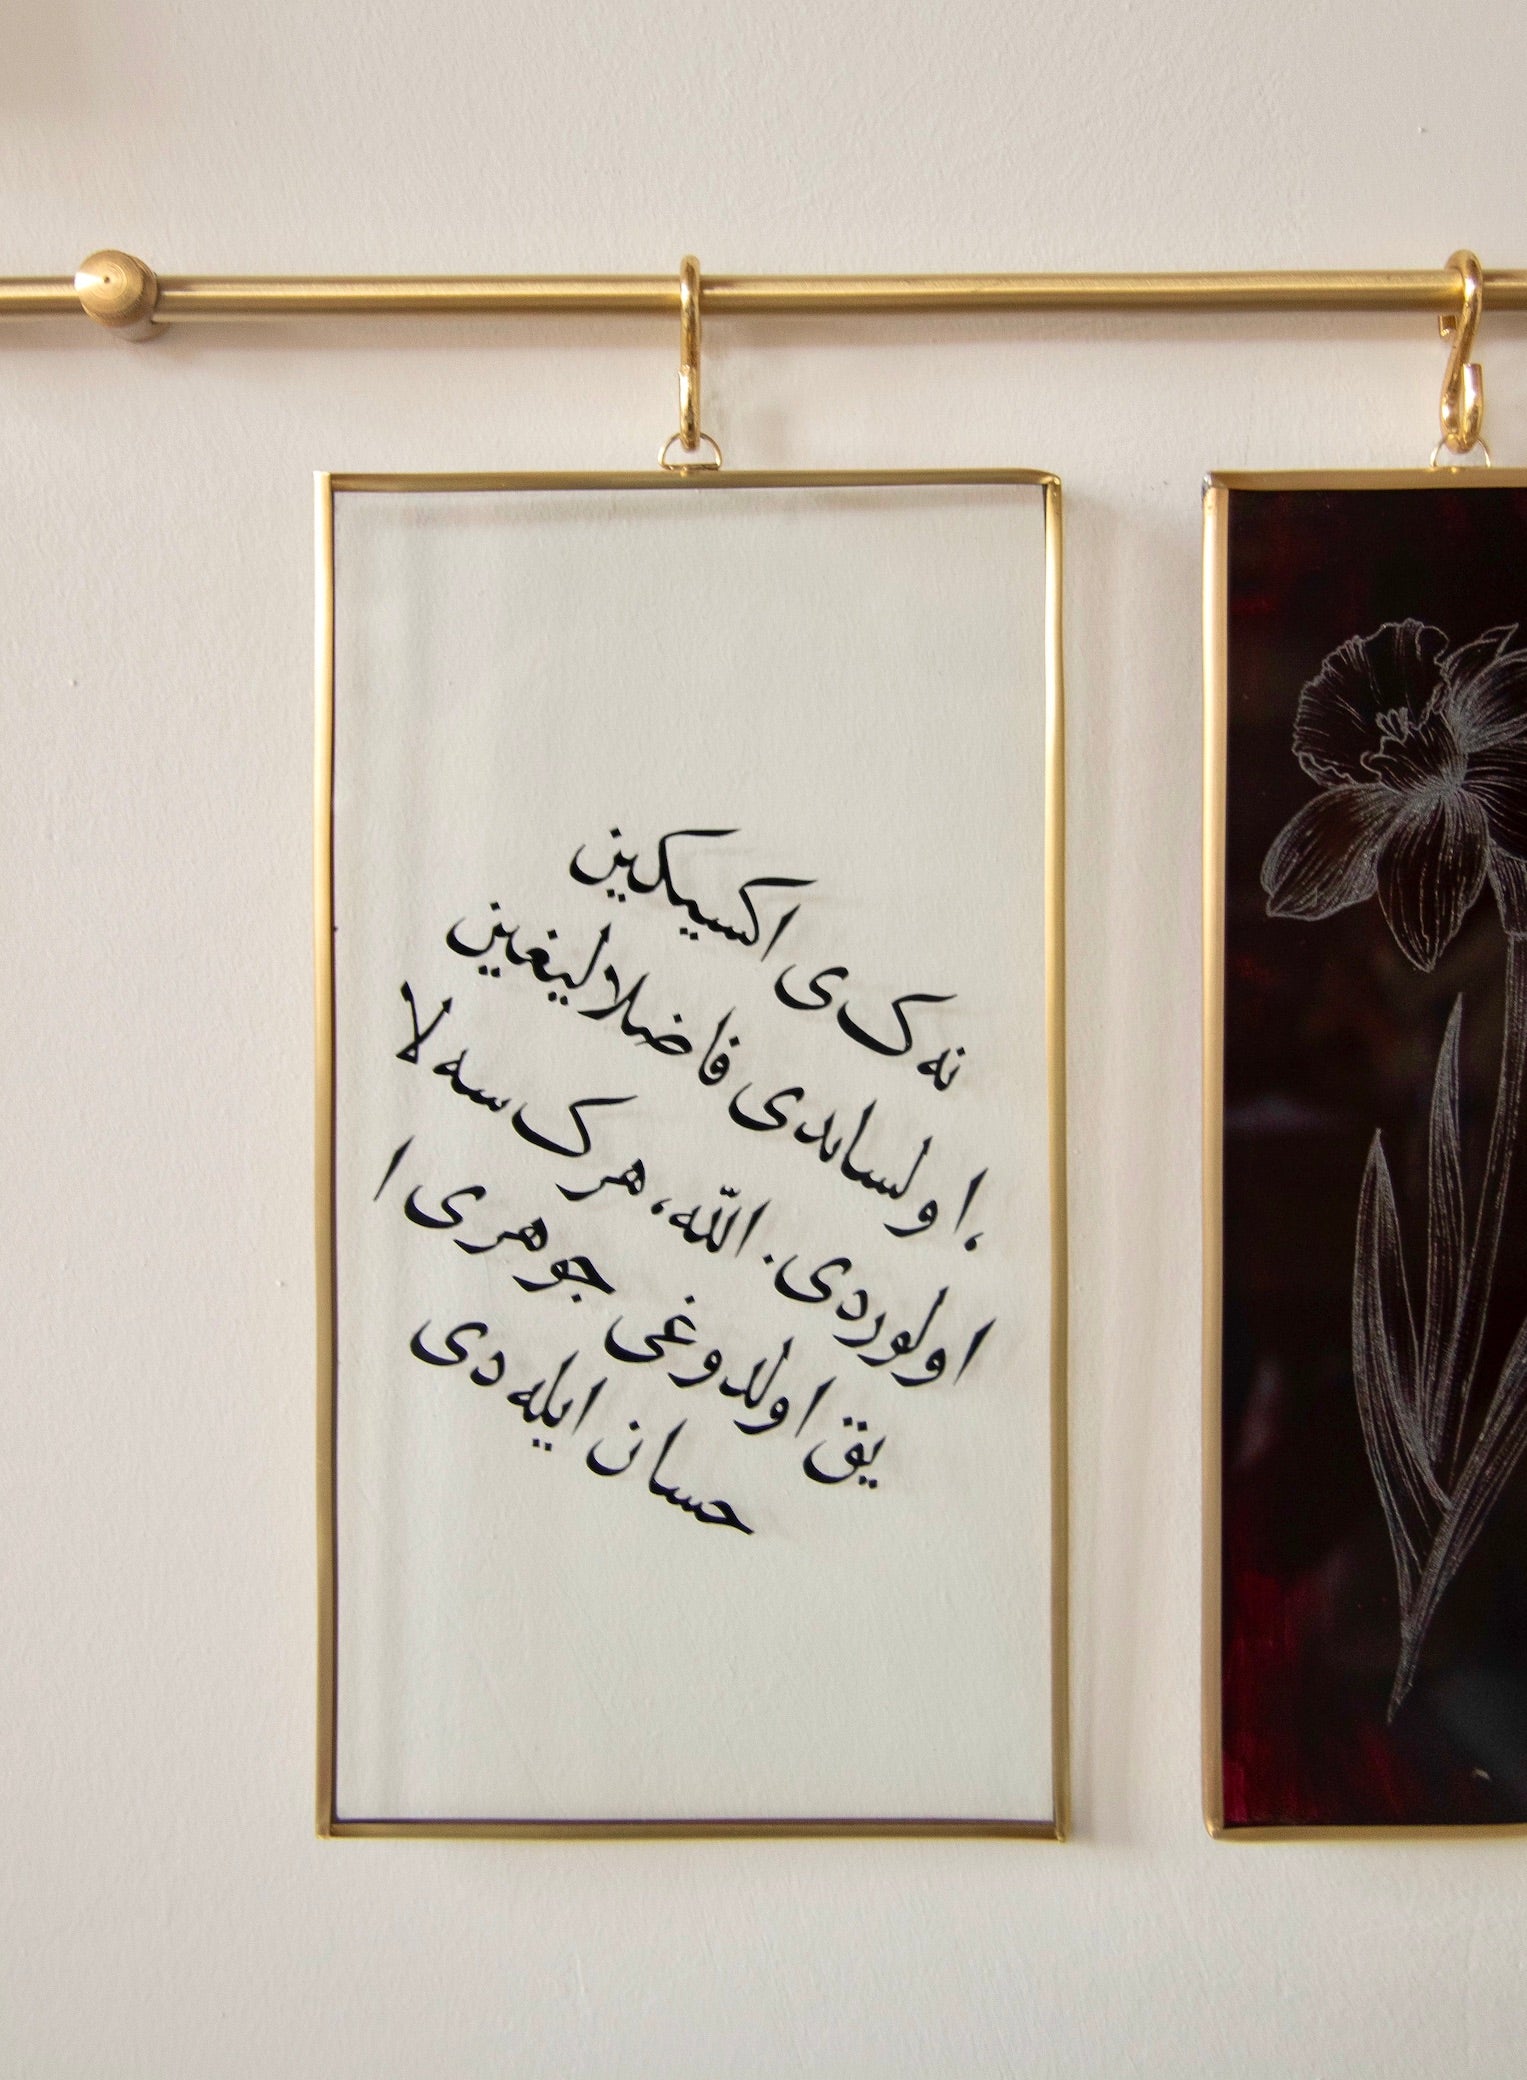 نه ک ی اکسیکین
، اولساىدی فاضلالیغین
اولوردی. اللّٰه، هرک سه لا
یق اولدوغی جوهری ا
حسان ایله دی